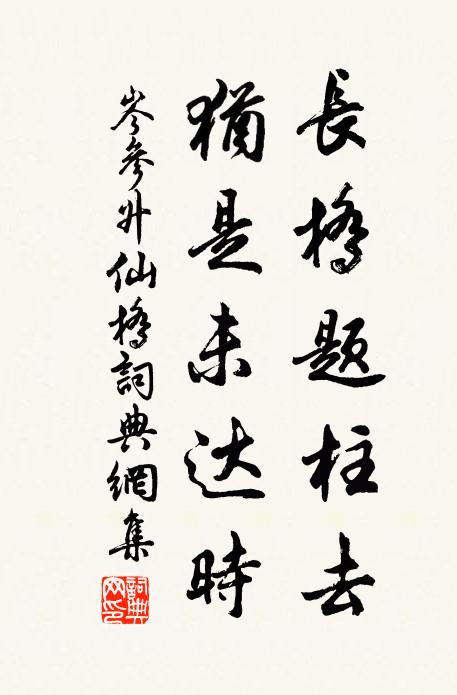 長橋题柱去
猶是未达時
岑參升仙橋詞典網集
詞典网印